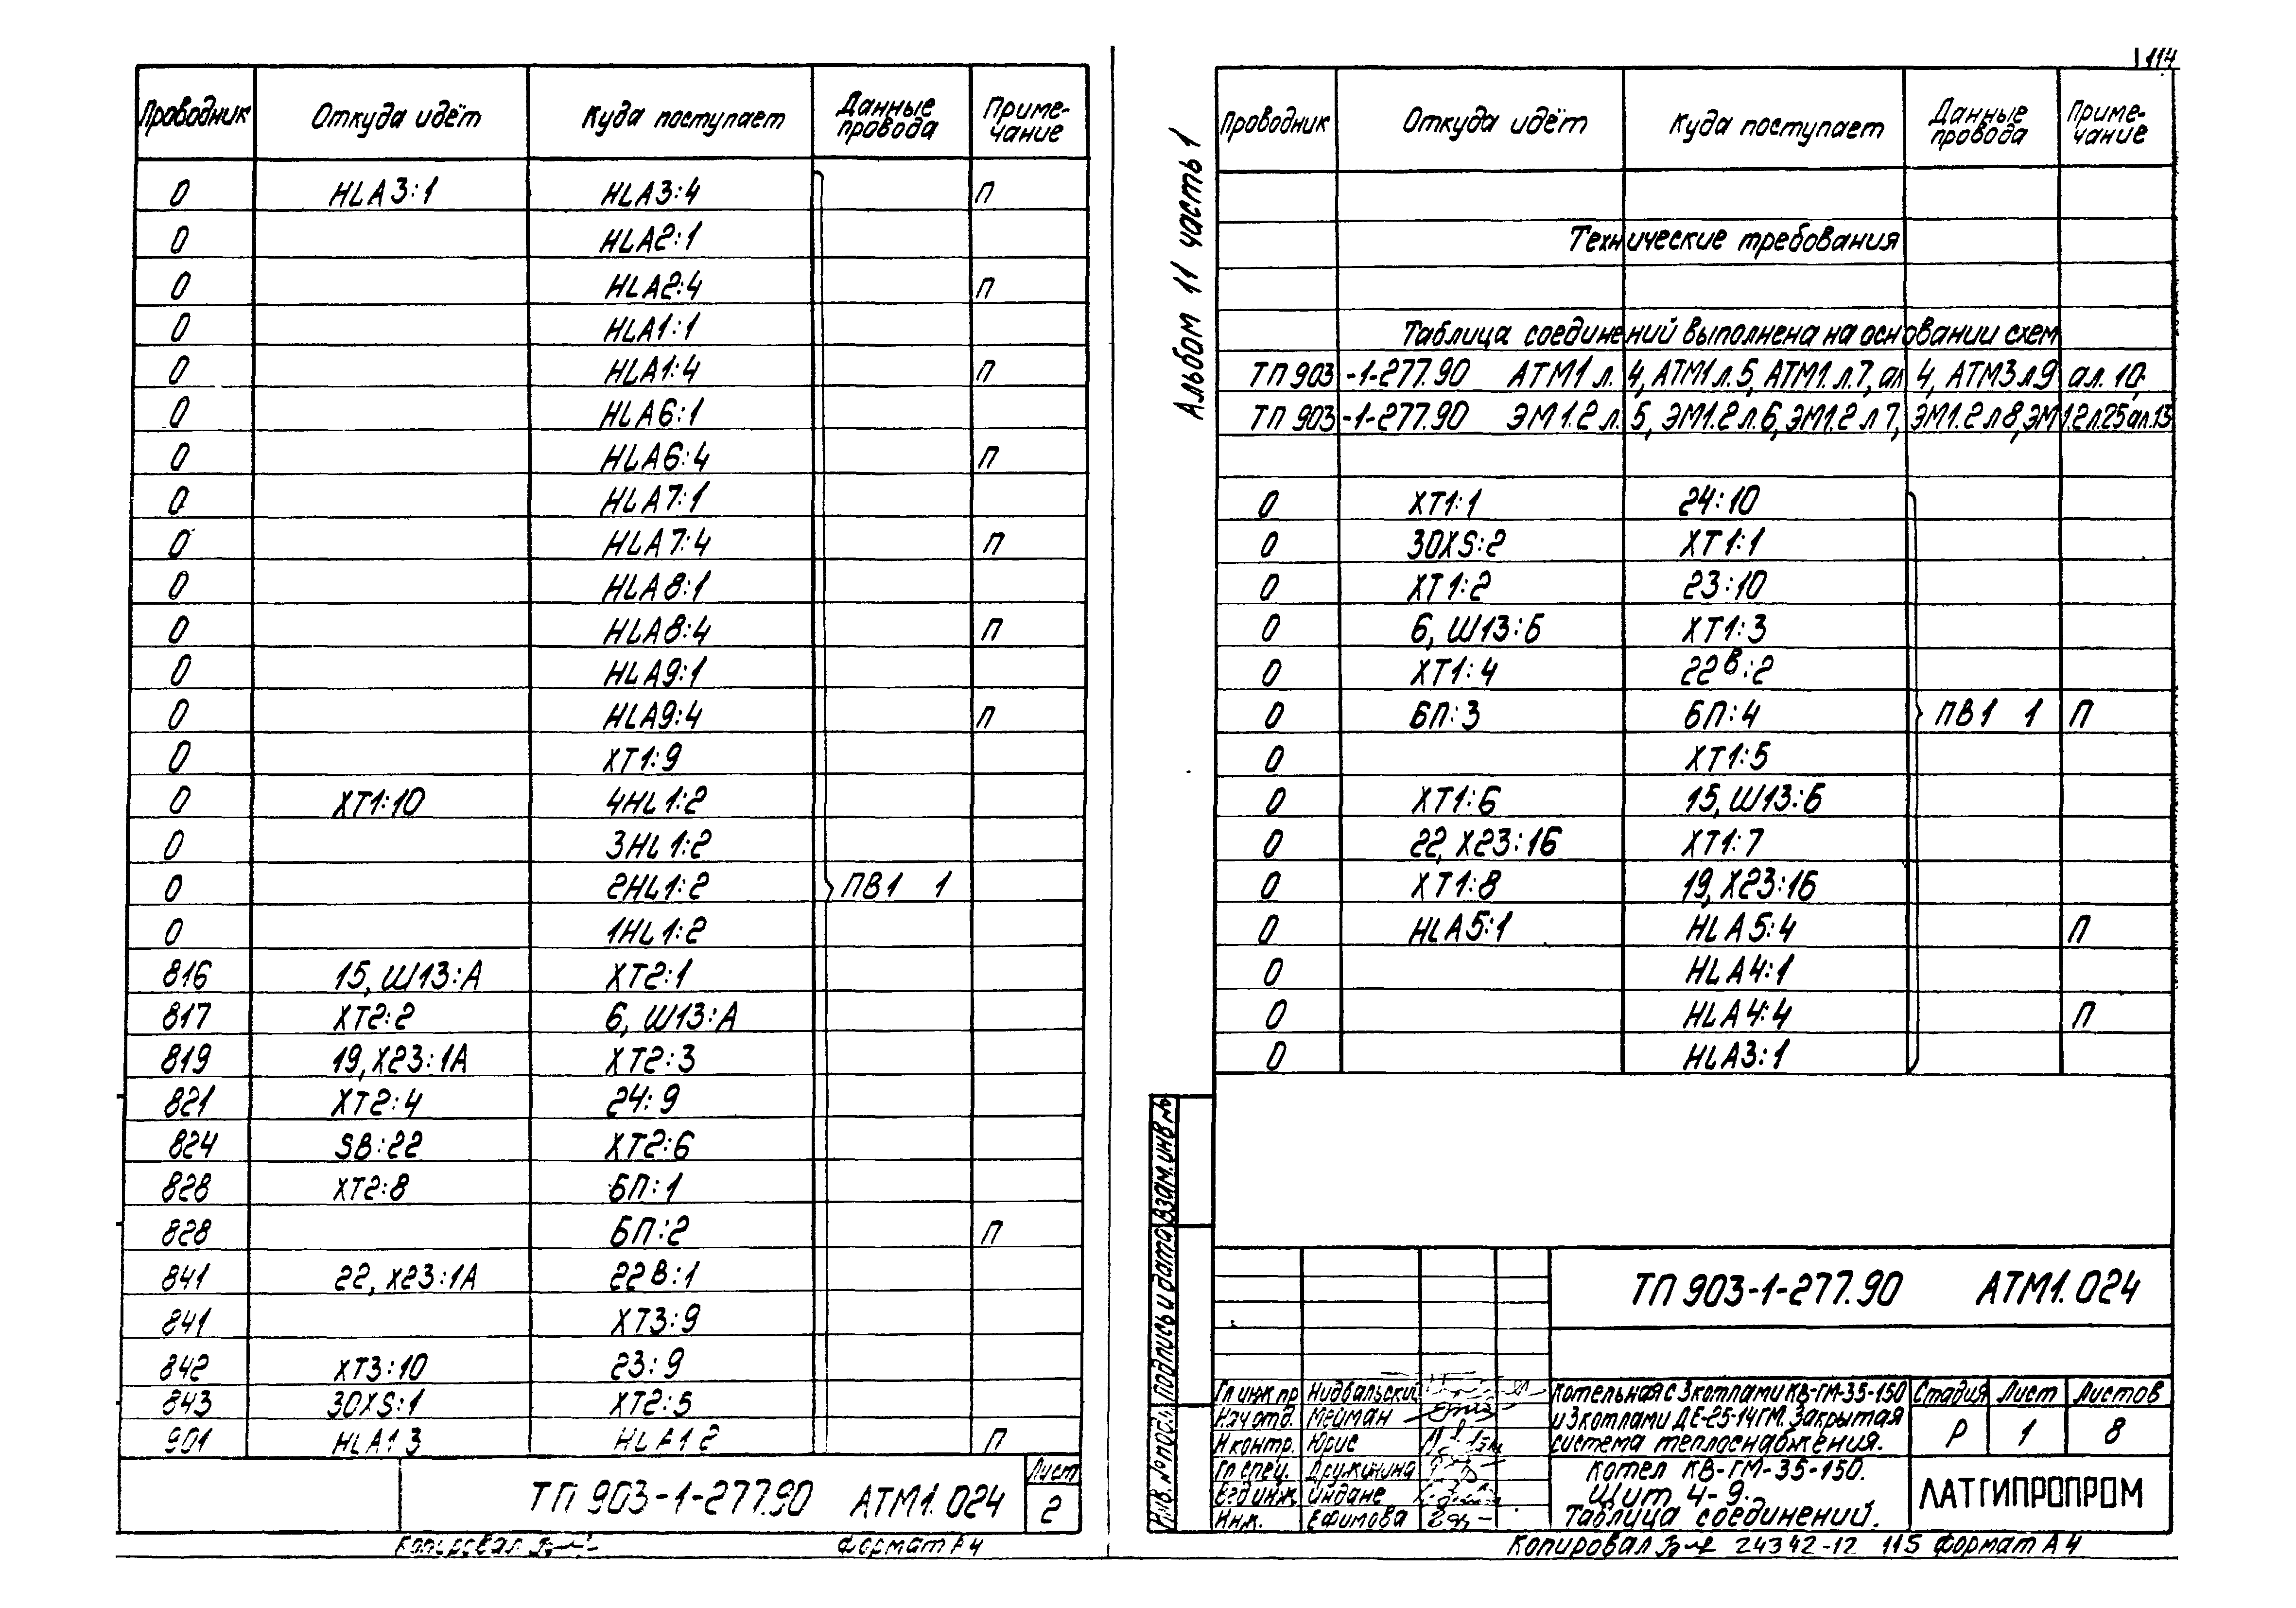 Проводник Откуда идёт Куда поступает Данные провода Приме-чание
0 HLA3:1 HLA3:4 П
0 HLA2:1
0 HLA2:4 П
0 HLA1:1
0 HLA1:4 П
0 HLA6:1
0 HLA6:4 П
0 HLA7:1
0 HLA7:4 П
0 HLA8:1
0 HLA8:4 П
0 HLA9:1
0 HLA9:4 П
0 XT1:9
0 XT1:10 4HL1:2
0 3HL1:2
0 2HL1:2 ПВ1 1
0 1HL1:2
816 15, Ш13:А XT2:1
817 XT2:2 6, Ш13:А
819 19, X23:1А XT2:3
821 XT2:4 24:9
824 SB:22 XT2:6
828 XT2:8 БП:1
828 БП:2 П
841 22, X23:1А 22В:1
841 XT3:9
842 XT3:10 23:9
843 30XS:1 XT2:5
901 HLA1 3 HLA1 2 П
ТП 903-1-277.90 АТМ1.024
Лист
2
Копировал
Формат А4
114
Альбом 11 часть 1
Проводник Откуда идёт Куда поступает Данные провода Приме-чание
Технические требования
Таблица соединений выполнена на основании схем
ТП 903-1-277.90 АТМ1 л. 4, АТМ1 л.5, АТМ1. л.7, ал 4, АТМ3 л9 ал. 10.
ТП 903-1-277.90 ЭМ1.2 л. 5, ЭМ1.2 л.6, ЭМ1.2 л 7, ЭМ1.2 л 8, ЭМ1.2 л.25 ал.13
0 XT1:1 24:10
0 30XS:2 XT1:1
0 XT1:2 23:10
0 6, Ш13:Б XT1:3
0 XT1:4 22В:2
0 БП:3 БП:4 ПВ1 1 П
0 XT1:5
0 XT1:6 15, Ш13:Б
0 22, X23:1Б XT1:7
0 XT1:8 19, X23:1Б
0 HLA5:1 HLA5:4 П
0 HLA4:1
0 HLA4:4 П
0 HLA3:1
Взам. инв №
Подпись и дата
Инв. № подл.
ТП 903-1-277.90 АТМ1.024
Гл инж пр Нидбальский
Нач отд. Мейман
Н контр. Юрис
Гл спец. Дружинина
Вед инж Индане
Инж. Ефимова
Котельная с 3 котлами КВ-ГМ-35-150
и 3 котлами ДЕ-25-14ГМ. Закрытая
система теплоснабжения.
Стадия Лист Листов
Р 1 8
Котел КВ-ГМ-35-150.
Щит 4-9.
Таблица соединений.
ЛАТГИПРОПРОМ
Копировал 24342-12 115 Формат А4